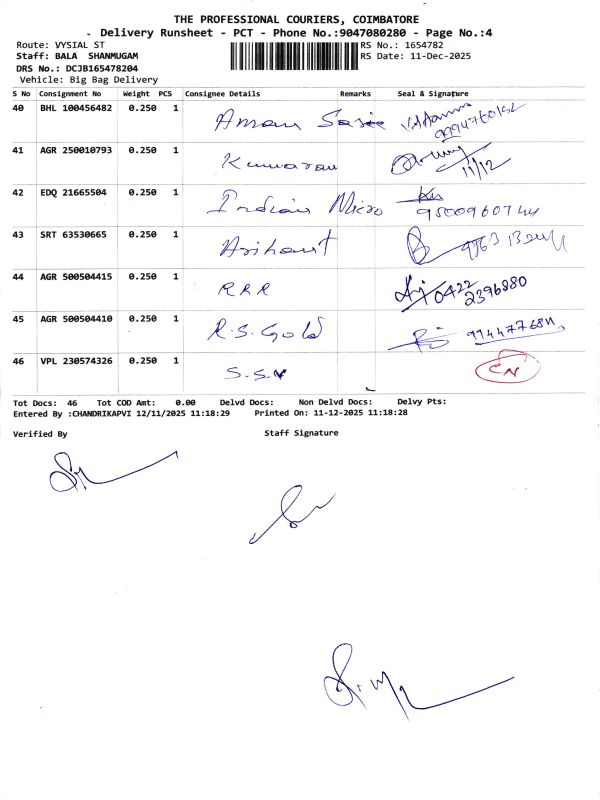 THE PROFESSIONAL COURIERS, COIMBATORE
Delivery Runsheet - PCT - Phone No.:9047080280 - Page No.:4
Route: VYSIAL ST RS No.: 1654782
Staff: BALA SHANMUGAM RS Date: 11-Dec-2025
DRS No.: DCJB165478204
Vehicle: Big Bag Delivery
S No Consignment No Weight PCS Consignee Details Remarks Seal & Signature
40 BHL 100456482 0.250 1 Aman
41 AGR 250010793 0.250 1 Kumaran 11/12
42 EDQ 21665504 0.250 1 Indian Micro 9500960744
43 SRT 63530665 0.250 1 Arihant
44 AGR 500504415 0.250 1 RRR 0422 2396880
45 AGR 500504410 0.250 1 R.S. Gold
46 VPL 230574326 0.250 1 S.S.V
Tot Docs: 46 Tot COD Amt: 0.00 Delvd Docs: Non Delvd Docs: Delvy Pts:
Entered By :CHANDRIKAPVI 12/11/2025 11:18:29 Printed On: 11-12-2025 11:18:28
Verified By Staff Signature